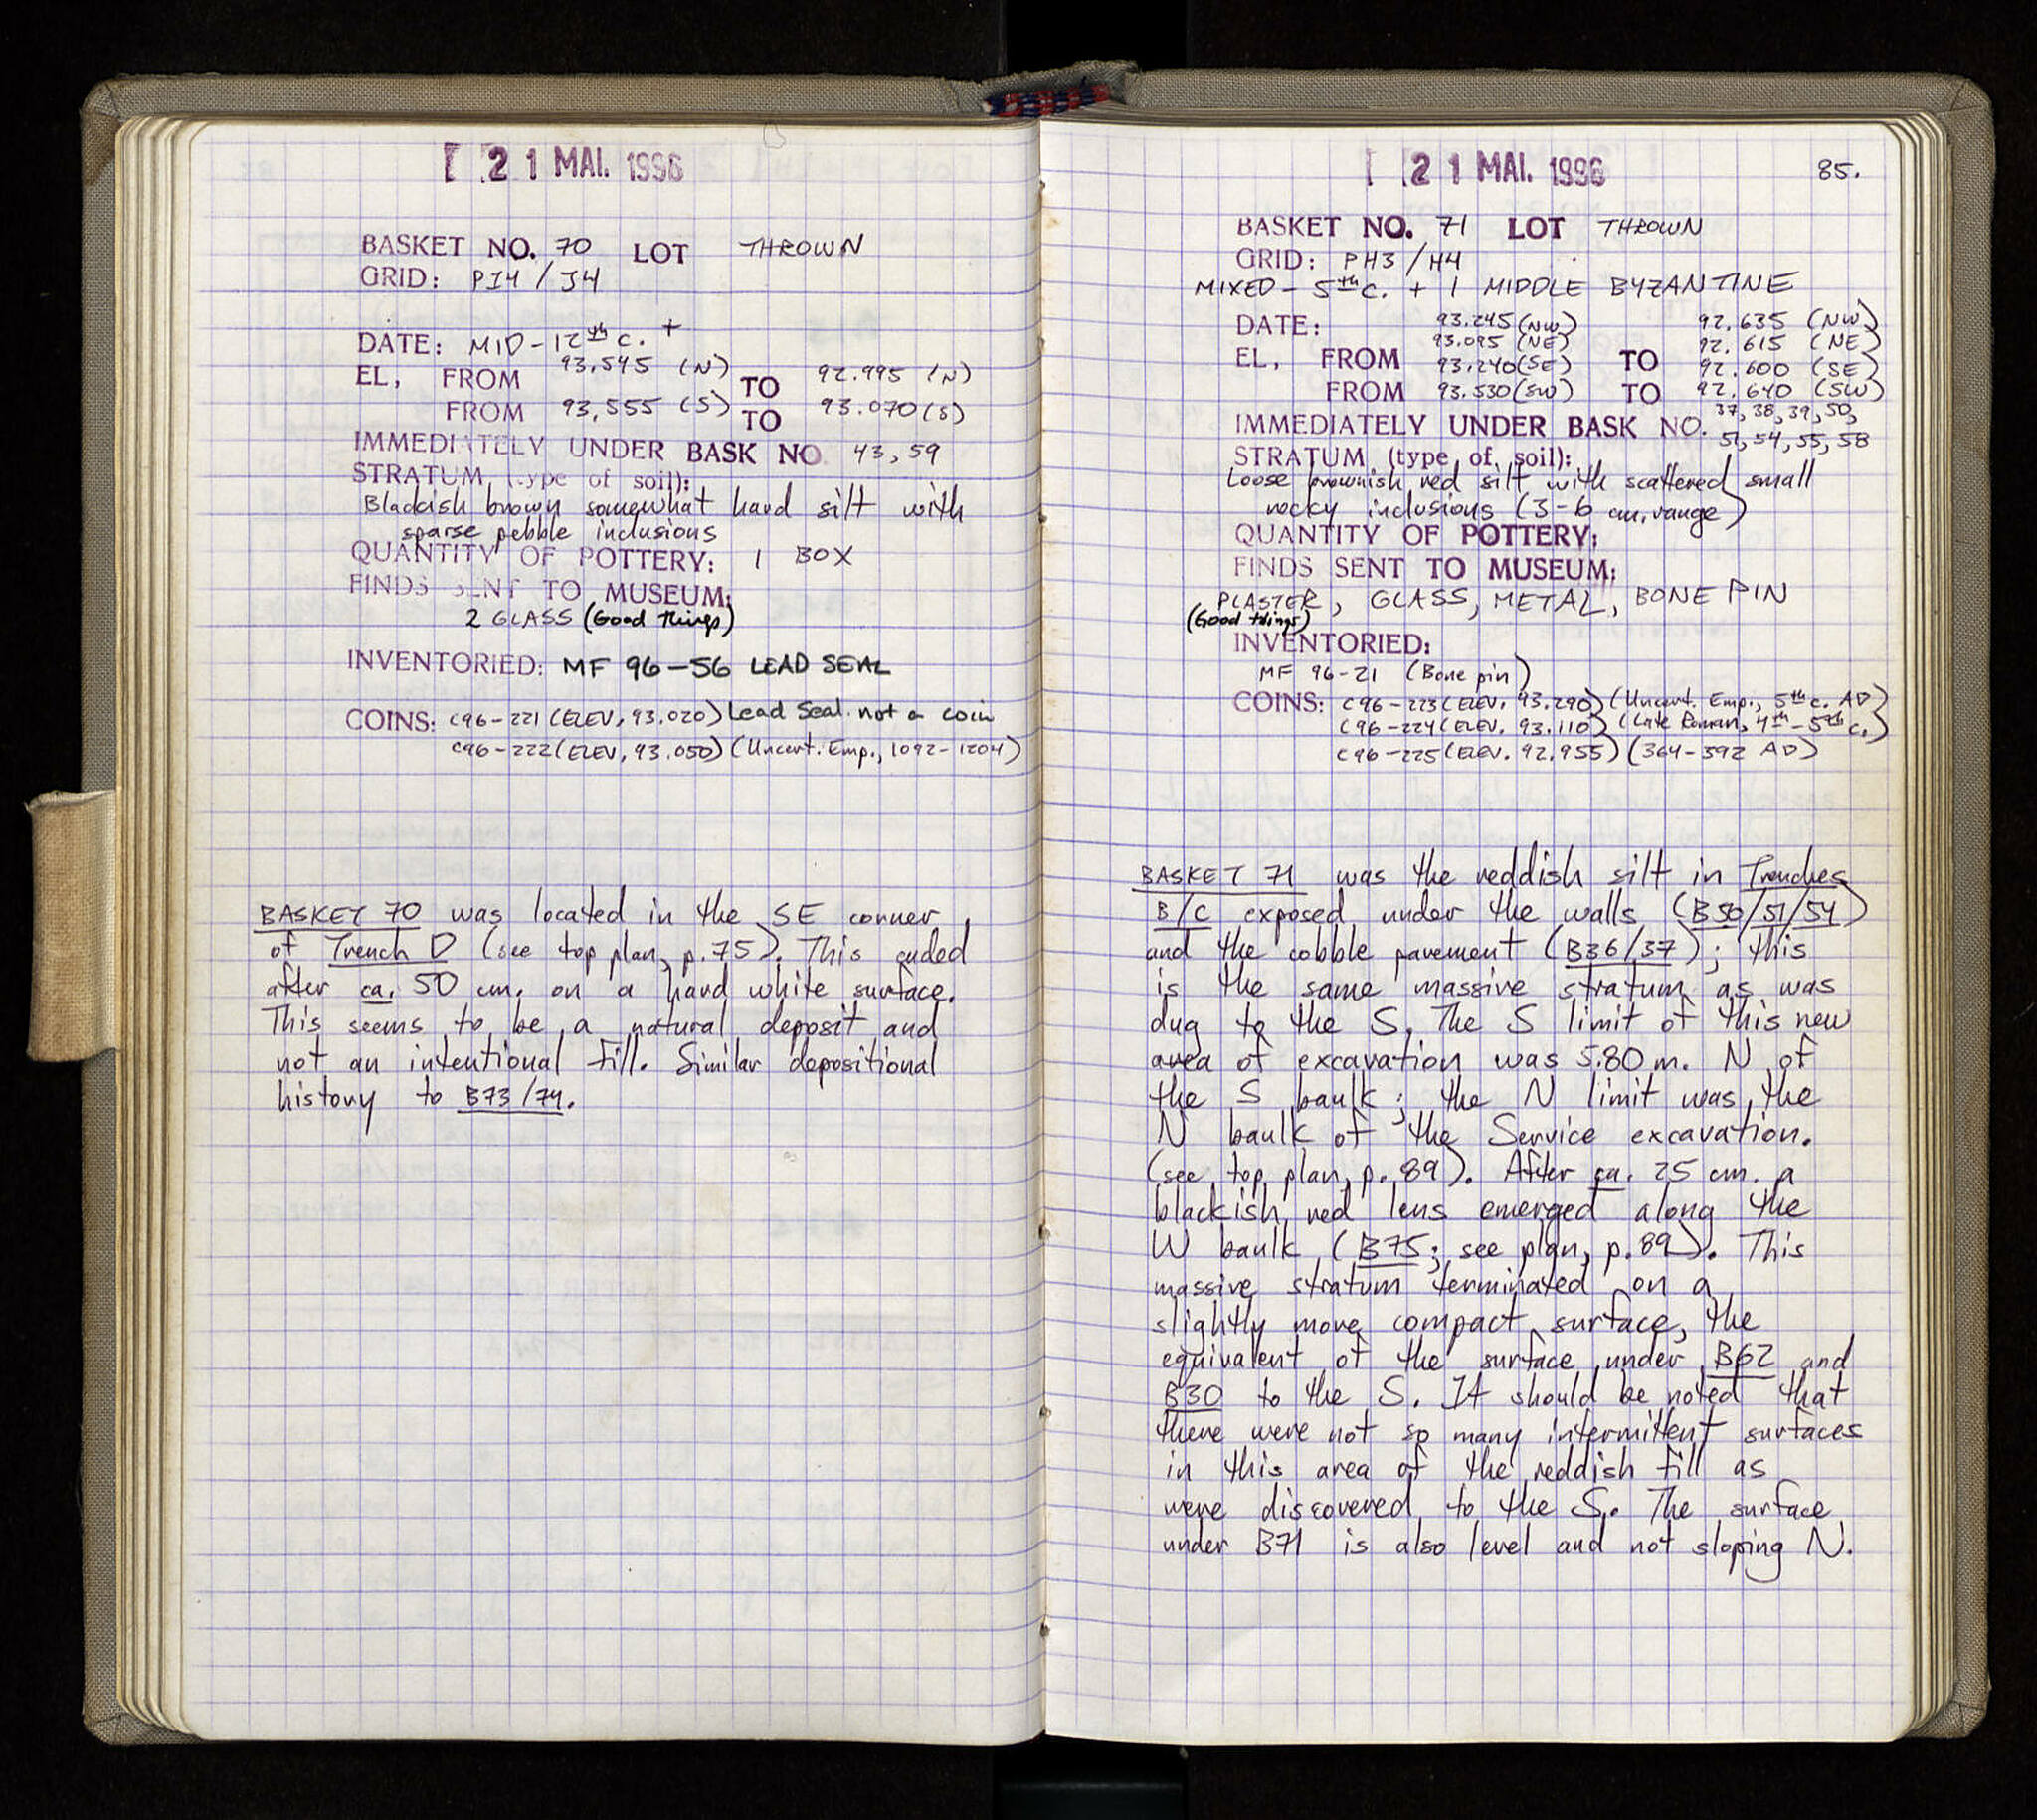 21 MAI. 1996
BASKET NO. 70 LOT THROWN
GRID: PI4 / J4
DATE: MID-12th c. +
EL, FROM 93,545 (N) TO 92.995 (N)
FROM 93,555 (S) TO 93.070 (S)
IMMEDIATELY UNDER BASK NO. 43, 59
STRATUM (type of soil):
Blackish brown somewhat hard silt with
sparse pebble inclusions
QUANTITY OF POTTERY: 1 BOX
FINDS SENT TO MUSEUM:
2 GLASS (Good Things)
INVENTORIED: MF 96-56 LEAD SEAL
COINS: C96-221 (ELEV, 93.020) Lead Seal. not a coin
C96-222 (ELEV, 93.050) (Uncert. Emp., 1092-1204)
BASKET 70 was located in the SE corner
of Trench D (see top plan, p.75). This ended
after ca. 50 cm. on a hard white surface.
This seems to be a natural deposit and
not an intentional fill. Similar depositional
history to B73/74.
21 MAI. 1996
85.
BASKET NO. 71 LOT THROWN
GRID: PH3 / H4
MIXED - 5th c. + 1 MIDDLE BYZANTINE
DATE: 93.245 (NW) 92.635 (NW)
93.095 (NE) 92.615 (NE)
EL, FROM 93.240 (SE) TO 92.600 (SE)
FROM 93.530 (SW) TO 92.640 (SW)
37, 38, 39, 50,
IMMEDIATELY UNDER BASK NO. 51, 54, 55, 58
STRATUM (type of soil):
Loose brownish red silt with scattered small
rocky inclusions (3-6 cm. range)
QUANTITY OF POTTERY:
FINDS SENT TO MUSEUM:
PLASTER, GLASS, METAL, BONE PIN
(Good things)
INVENTORIED:
MF 96-21 (Bone pin)
COINS: C96-223 (ELEV. 93.290) (Uncert. Emp., 5th c. AD)
C96-224 (ELEV. 93.110) (Late Roman, 4th-5th c.)
C96-225 (ELEV. 92.955) (364-392 AD)
BASKET 71 was the reddish silt in Trenches
B/C exposed under the walls (B50/51/54)
and the cobble pavement (B36/37); this
is the same massive stratum as was
dug to the S. The S limit of this new
area of excavation was 5.80 m. N of
the S baulk; the N limit was the
N baulk of the Service excavation.
(see top plan, p. 89). After ca. 25 cm. a
blackish red lens emerged along the
W baulk (B75; see plan, p. 89). This
massive stratum terminated on a
slightly more compact surface, the
equivalent of the surface under B62 and
B30 to the S. It should be noted that
there were not so many intermittent surfaces
in this area of the reddish fill as
were discovered to the S. The surface
under B71 is also level and not sloping N.